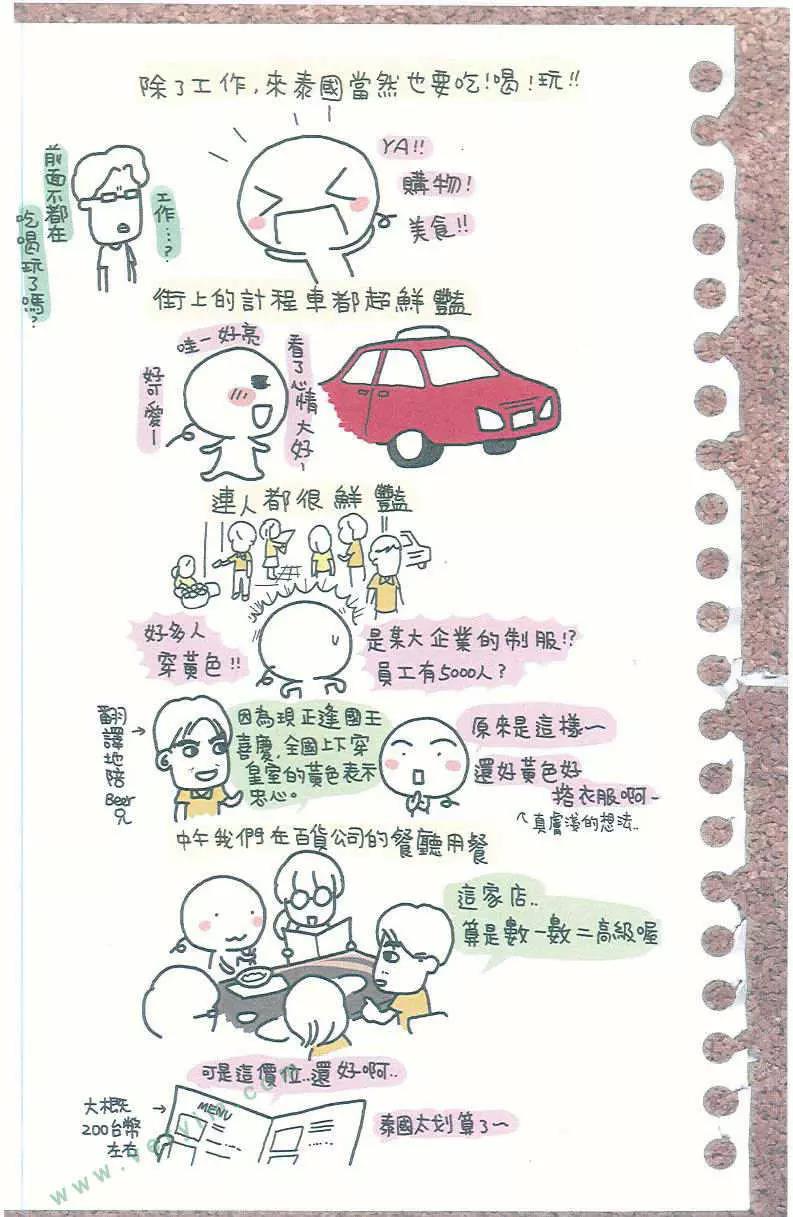 除了工作,來泰國當然也要吃!喝!玩!!
YA!!
購物!
美食!!
工作…?
前面不都在
吃喝玩了嗎?
街上的計程車都超鮮豔
哇一好亮
好可愛一
看了心情大好~
連人都很鮮豔
好多人
穿黃色!!
是某大企業的制服!?
員工有5000人?
翻譯地陪
Beer兄
因為現正逢國王
喜慶,全國上下穿
皇室的黃色表示
忠心。
原來是這樣~
還好黃色好
搭衣服啊~
真膚淺的想法..
中午我們在百貨公司的餐廳用餐
這家店..
算是數一數二高級喔
可是這價位..還好啊..
大概
200台幣
左右
MENU
泰國太划算了~